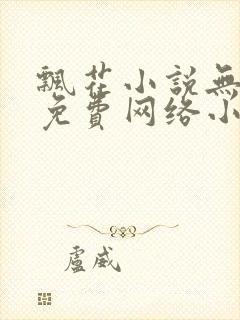 飄花小説無
免費网络小
盧威